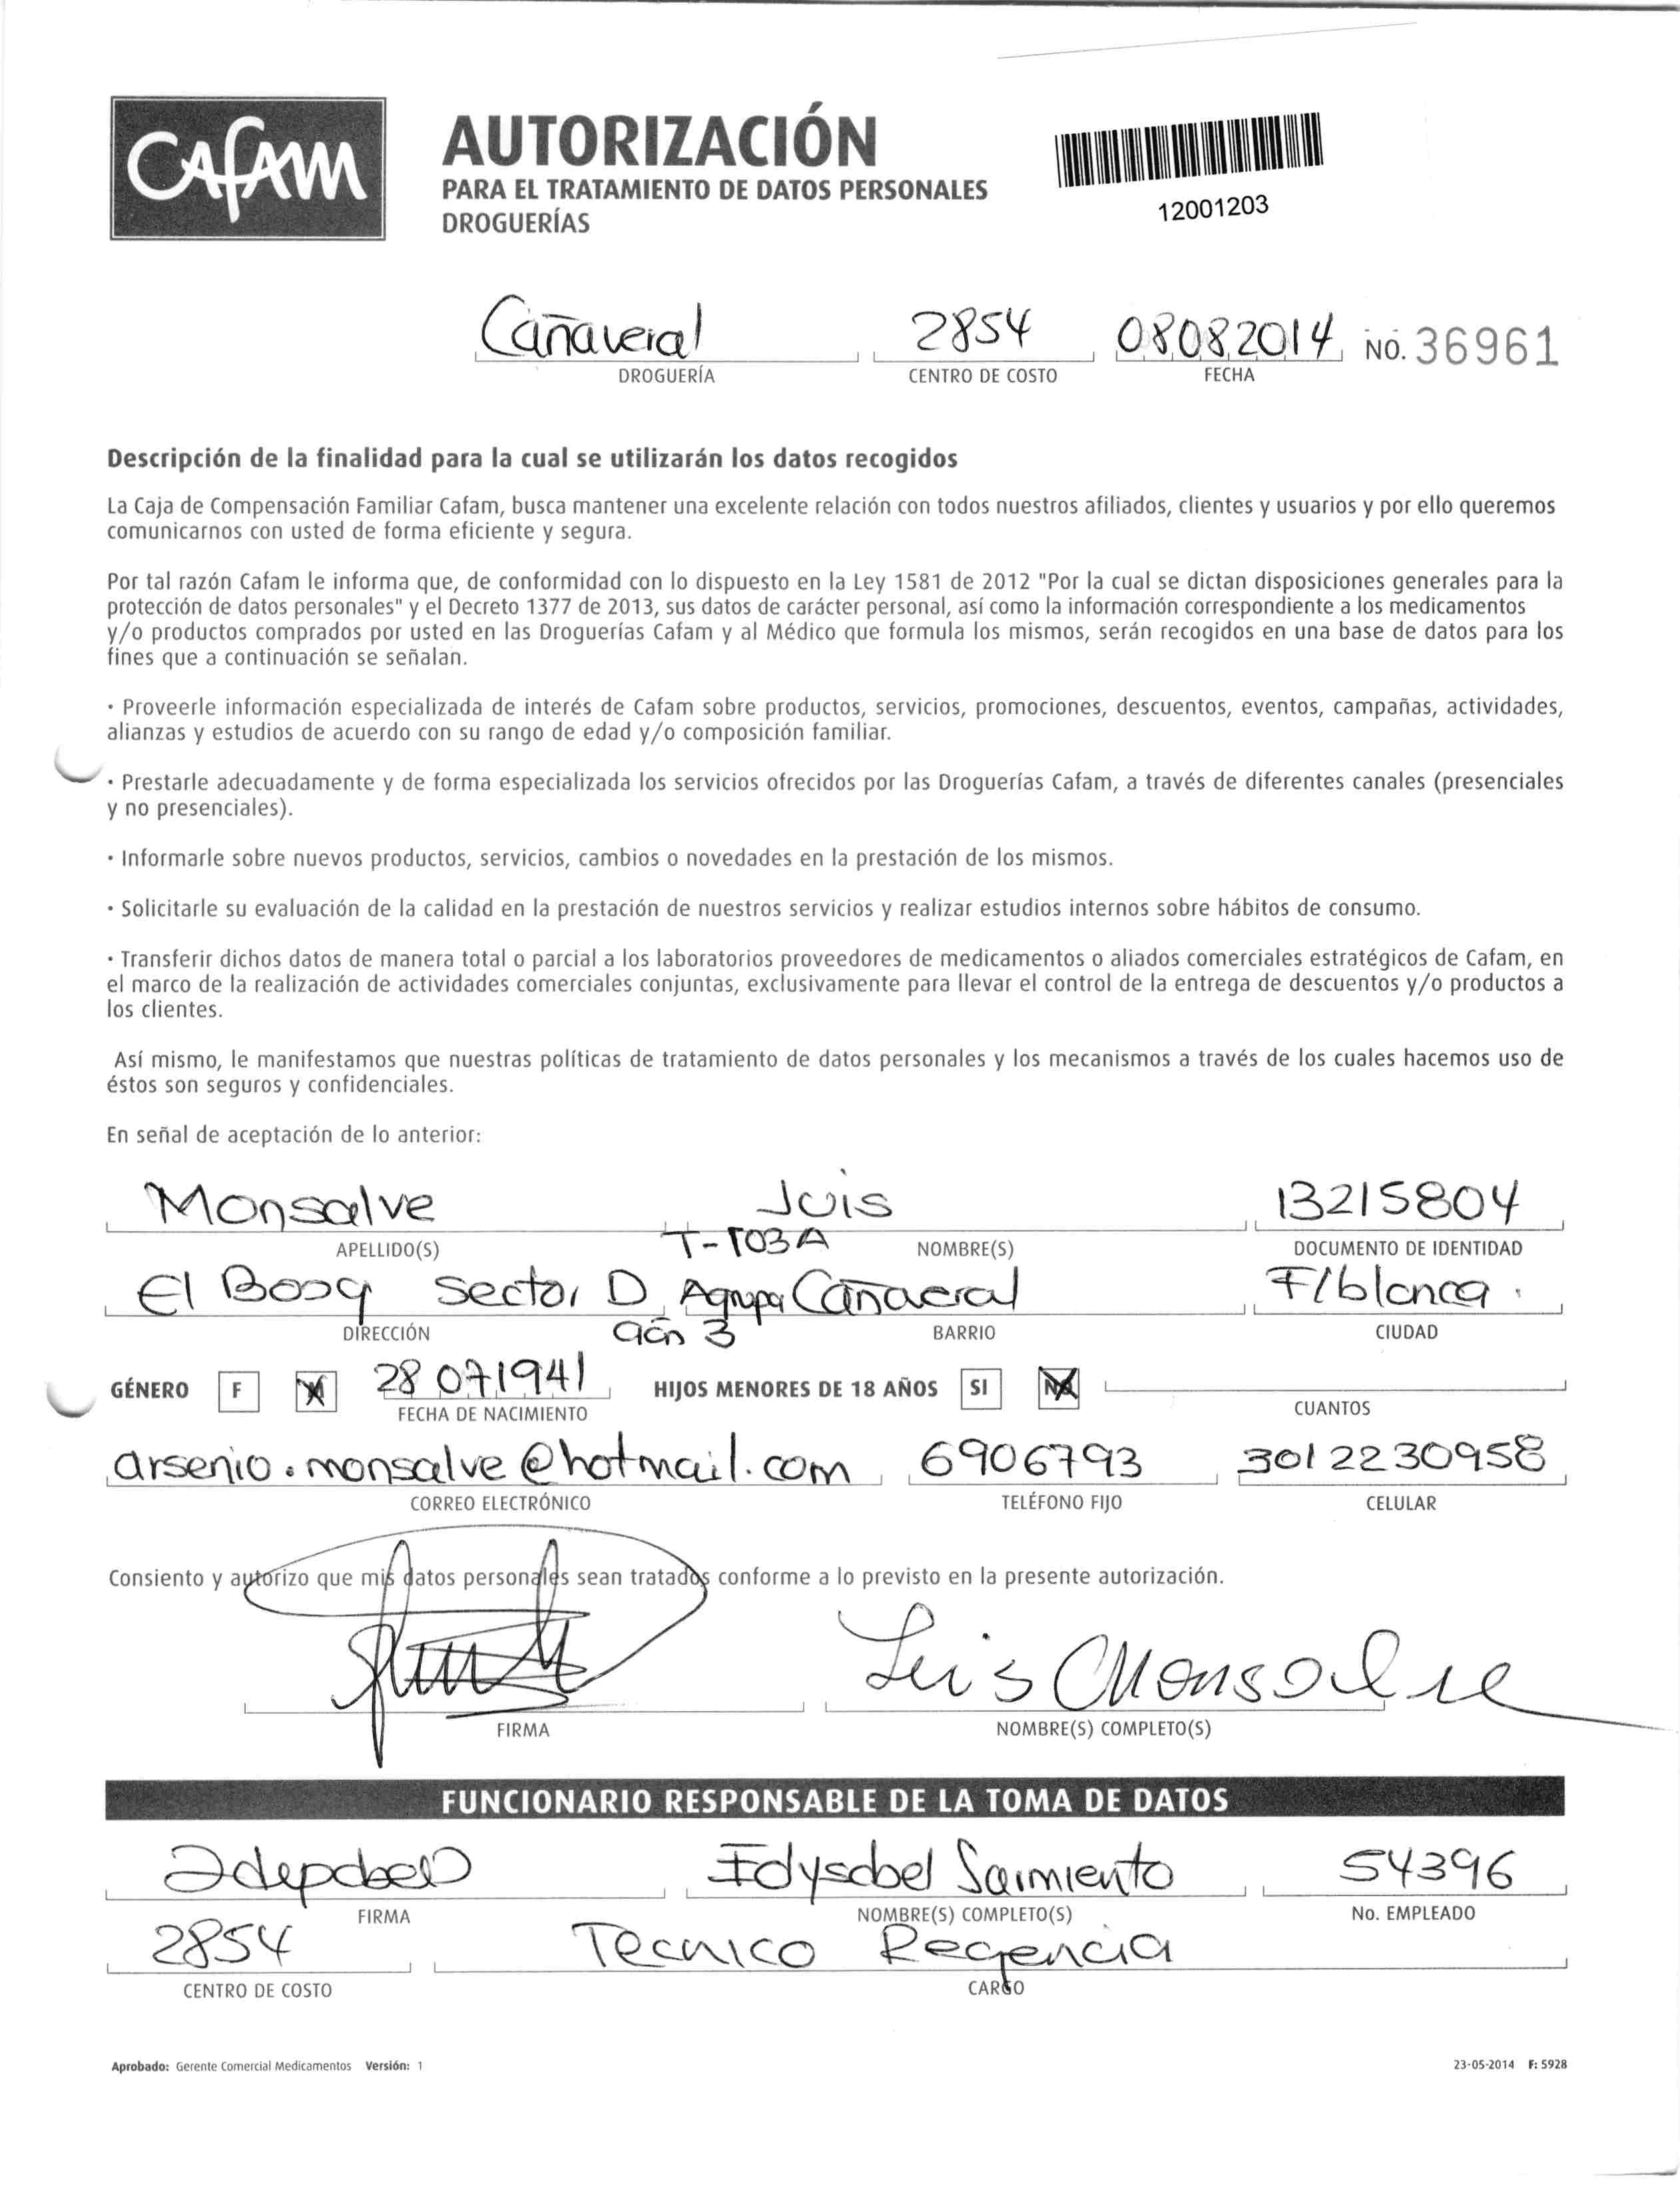 CAFAM
AUTORIZACIÓN
PARA EL TRATAMIENTO DE DATOS PERSONALES
DROGUERÍAS
12001203
Cañaveral 2854 08082014 NO. 36961
DROGUERÍA CENTRO DE COSTO FECHA
Descripción de la finalidad para la cual se utilizarán los datos recogidos
La Caja de Compensación Familiar Cafam, busca mantener una excelente relación con todos nuestros afiliados, clientes y usuarios y por ello queremos
comunicarnos con usted de forma eficiente y segura.
Por tal razón Cafam le informa que, de conformidad con lo dispuesto en la Ley 1581 de 2012 "Por la cual se dictan disposiciones generales para la
protección de datos personales" y el Decreto 1377 de 2013, sus datos de carácter personal, así como la información correspondiente a los medicamentos
y/o productos comprados por usted en las Droguerías Cafam y al Médico que formula los mismos, serán recogidos en una base de datos para los
fines que a continuación se señalan.
· Proveerle información especializada de interés de Cafam sobre productos, servicios, promociones, descuentos, eventos, campañas, actividades,
alianzas y estudios de acuerdo con su rango de edad y/o composición familiar.
· Prestarle adecuadamente y de forma especializada los servicios ofrecidos por las Droguerías Cafam, a través de diferentes canales (presenciales
y no presenciales).
· Informarle sobre nuevos productos, servicios, cambios o novedades en la prestación de los mismos.
· Solicitarle su evaluación de la calidad en la prestación de nuestros servicios y realizar estudios internos sobre hábitos de consumo.
· Transferir dichos datos de manera total o parcial a los laboratorios proveedores de medicamentos o aliados comerciales estratégicos de Cafam, en
el marco de la realización de actividades comerciales conjuntas, exclusivamente para llevar el control de la entrega de descuentos y/o productos a
los clientes.
Así mismo, le manifestamos que nuestras políticas de tratamiento de datos personales y los mecanismos a través de los cuales hacemos uso de
éstos son seguros y confidenciales.
En señal de aceptación de lo anterior:
Monsalve Luis 13215804
APELLIDO(S) T-103A NOMBRE(S) DOCUMENTO DE IDENTIDAD
El Bosq Sector D Agrupa Cañaveral F/blanca.
DIRECCIÓN ción 3 BARRIO CIUDAD
GÉNERO F M 28 07 1941 HIJOS MENORES DE 18 AÑOS SI NO
FECHA DE NACIMIENTO CUANTOS
arsenio.monsalve@hotmail.com 6906793 301 22 30958
CORREO ELECTRÓNICO TELÉFONO FIJO CELULAR
Consiento y autorizo que mis datos personales sean tratados conforme a lo previsto en la presente autorización.
Luis Monsalve
FIRMA NOMBRE(S) COMPLETO(S)
FUNCIONARIO RESPONSABLE DE LA TOMA DE DATOS
Idysabel Sarmiento 54396
FIRMA NOMBRE(S) COMPLETO(S) No. EMPLEADO
2854 Tecnico Regencia
CENTRO DE COSTO CARGO
Aprobado: Gerente Comercial Medicamentos Versión: 1 23-05-2014 F: 5928